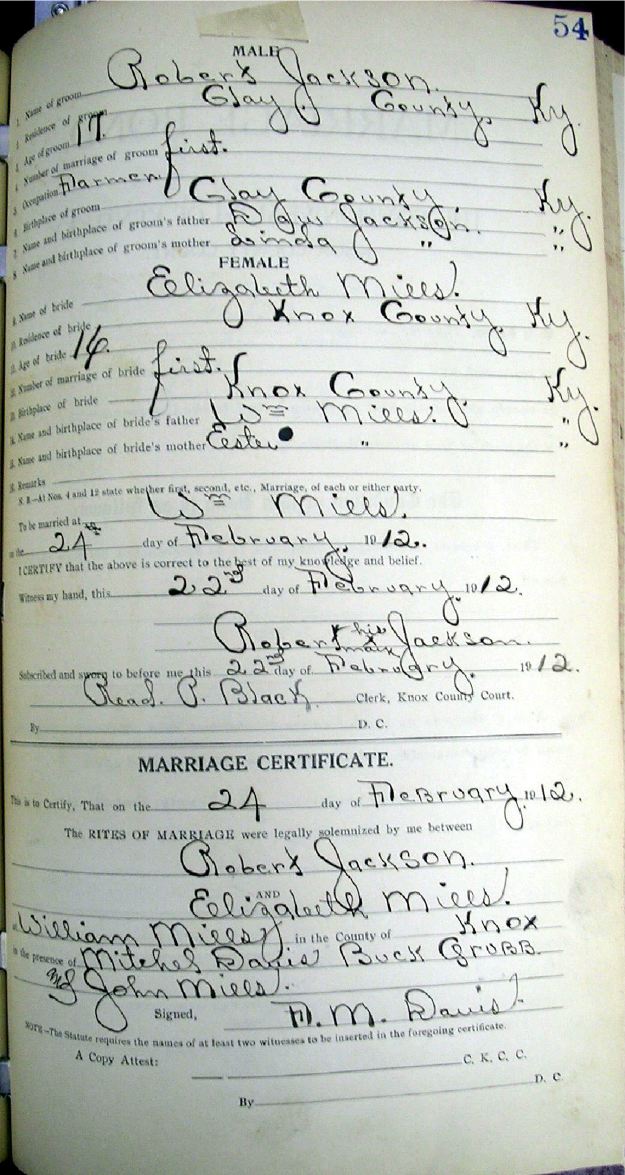 54
MALE
1. Name of groom Robert Jackson.
2. Residence of groom Clay County, Ky.
3. Age of groom 17.
4. Number of marriage of groom first.
5. Occupation Farmer
6. Birthplace of groom Clay County, Ky.
7. Name and birthplace of groom's father Daw Jackson. "
8. Name and birthplace of groom's mother Linda " "
FEMALE
9. Name of bride Elizabeth Mills.
10. Residence of bride Knox County, Ky.
11. Age of bride 16.
12. Number of marriage of bride first.
13. Birthplace of bride Knox County. Ky.
14. Name and birthplace of bride's father Wm Mills. "
15. Name and birthplace of bride's mother Ester " "
16. Remarks
N. B.—At Nos. 4 and 12 state whether first, second, etc., Marriage, of each or either party.
To be married at Wm Mills.
on the 24th day of February, 1912.
I CERTIFY that the above is correct to the best of my knowledge and belief.
Witness my hand, this 22nd day of February, 1912.
Robert his mark Jackson.
Subscribed and sworn to before me this 22nd day of February, 1912.
Read. P. Black Clerk, Knox County Court.
By D. C.
MARRIAGE CERTIFICATE.
This is to Certify, That on the 24 day of February, 1912.
The RITES OF MARRIAGE were legally solemnized by me between
Robert Jackson.
AND
Elizabeth Mills.
at William Mills in the County of Knox
in the presence of Mitchel Davis Buck Grubb.
and John Mills.
Signed, F. M. Davis.
NOTE—The Statute requires the names of at least two witnesses to be inserted in the foregoing certificate.
A Copy Attest: C. K. C. C.
D. C.
By